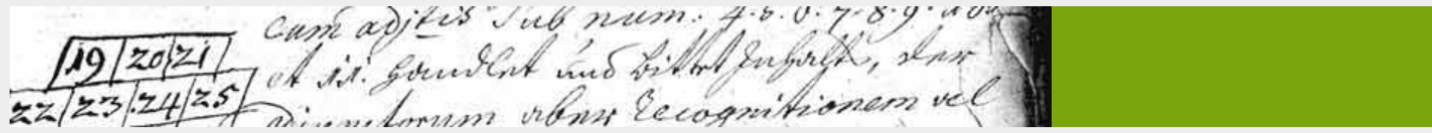 19 20 21
22 23 24 25
cum adjtis sub num. 4. 5. 6. 7. 8. 9.
et 11. handlet und bittet Inhalts, der
adjunctorum aber recognitionem vel